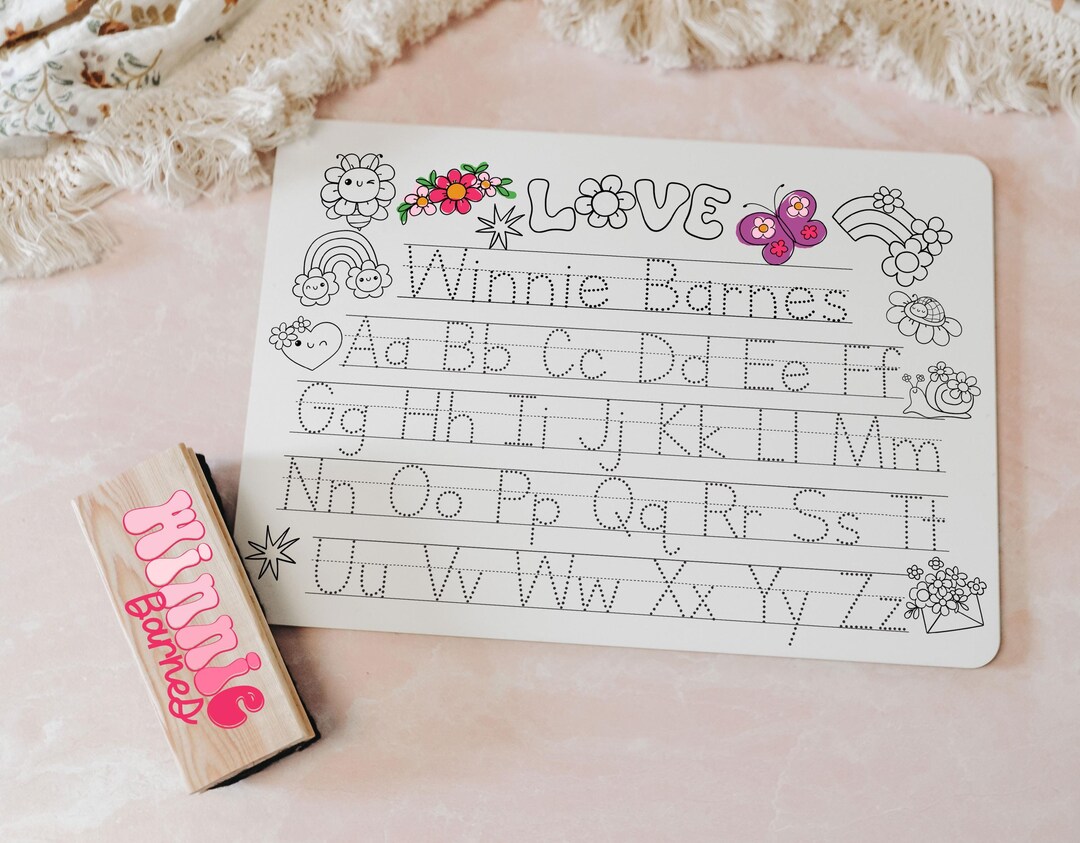 LOVE
Winnie Barnes
Aa Bb Cc Dd Ee Ff
Gg Hh Ii Jj Kk Ll Mm
Nn Oo Pp Qq Rr Ss Tt
Uu Vv Ww Xx Yy Zz
Winnie
Barnes